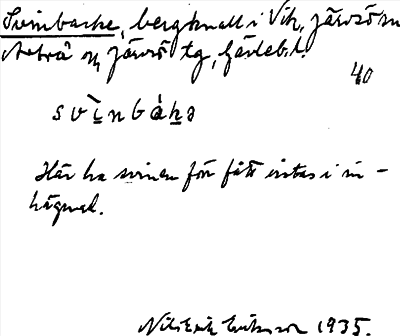 Svinbacke, bergknall i Vik, Järvsö sn
Arbrå o. Järvsö tg, Gävleb. l.
40
svìnbákə
Här ha svinen förr fått vistas i in-
hägnad.
Nils Erik Eriksson 1935.